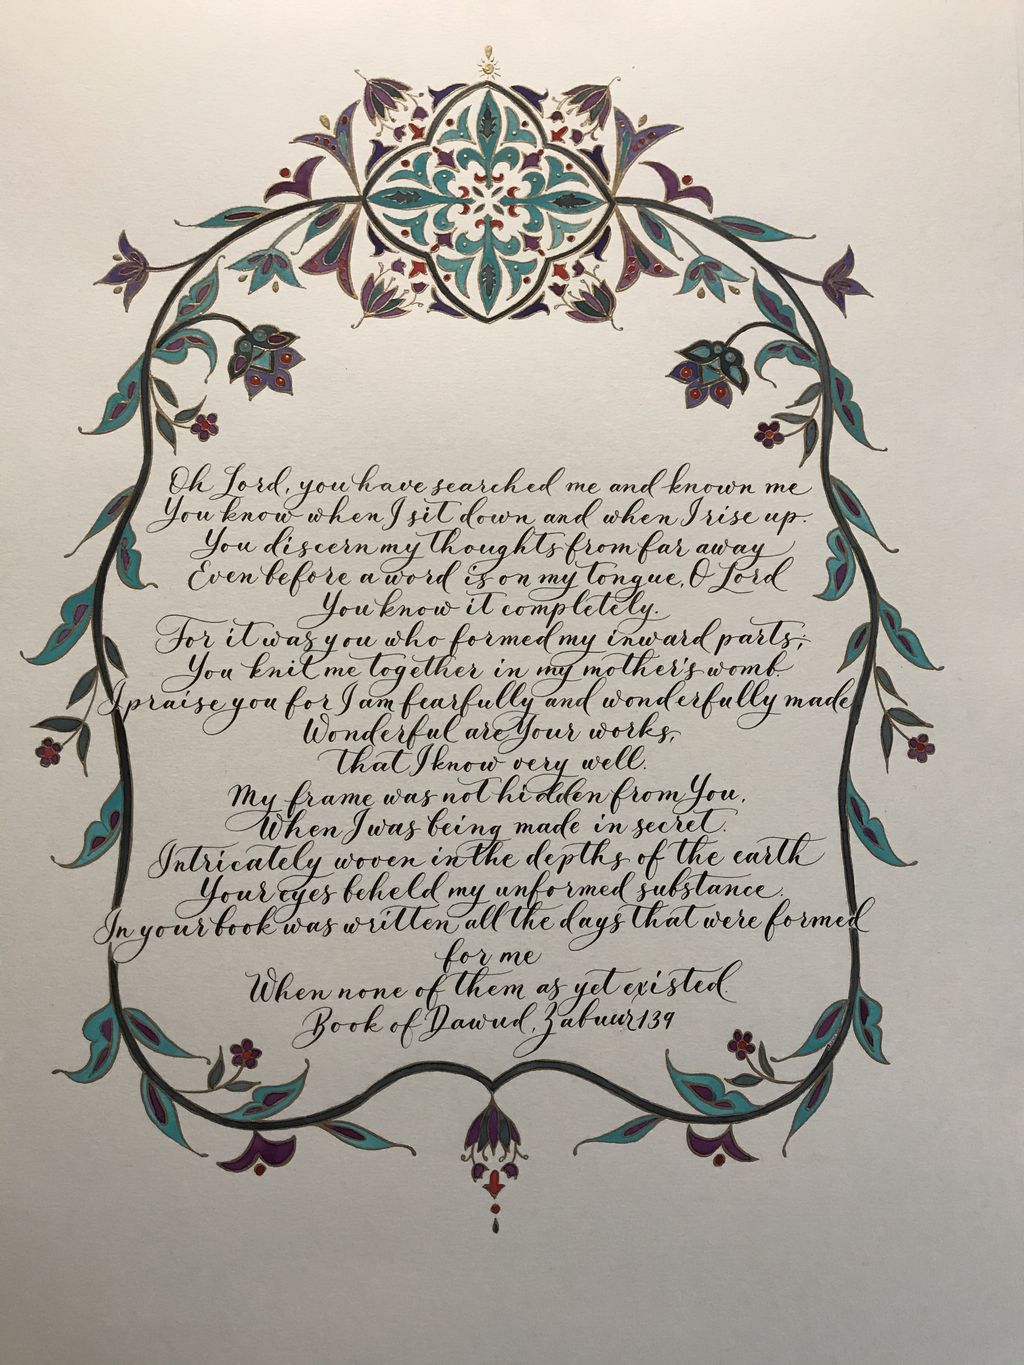 Oh Lord, you have searched me and known me
You know when I sit down and when I rise up.
You discern my thoughts from far away
Even before a word is on my tongue, O Lord
You know it completely.
For it was you who formed my inward parts;
You knit me together in my mother's womb.
I praise you for I am fearfully and wonderfully made
Wonderful are Your works;
that I know very well.
My frame was not hidden from You,
When I was being made in secret.
Intricately woven in the depths of the earth
Your eyes beheld my unformed substance.
In your book was written all the days that were formed
for me
When none of them as yet existed.
Book of Dawud, Zabuur 139